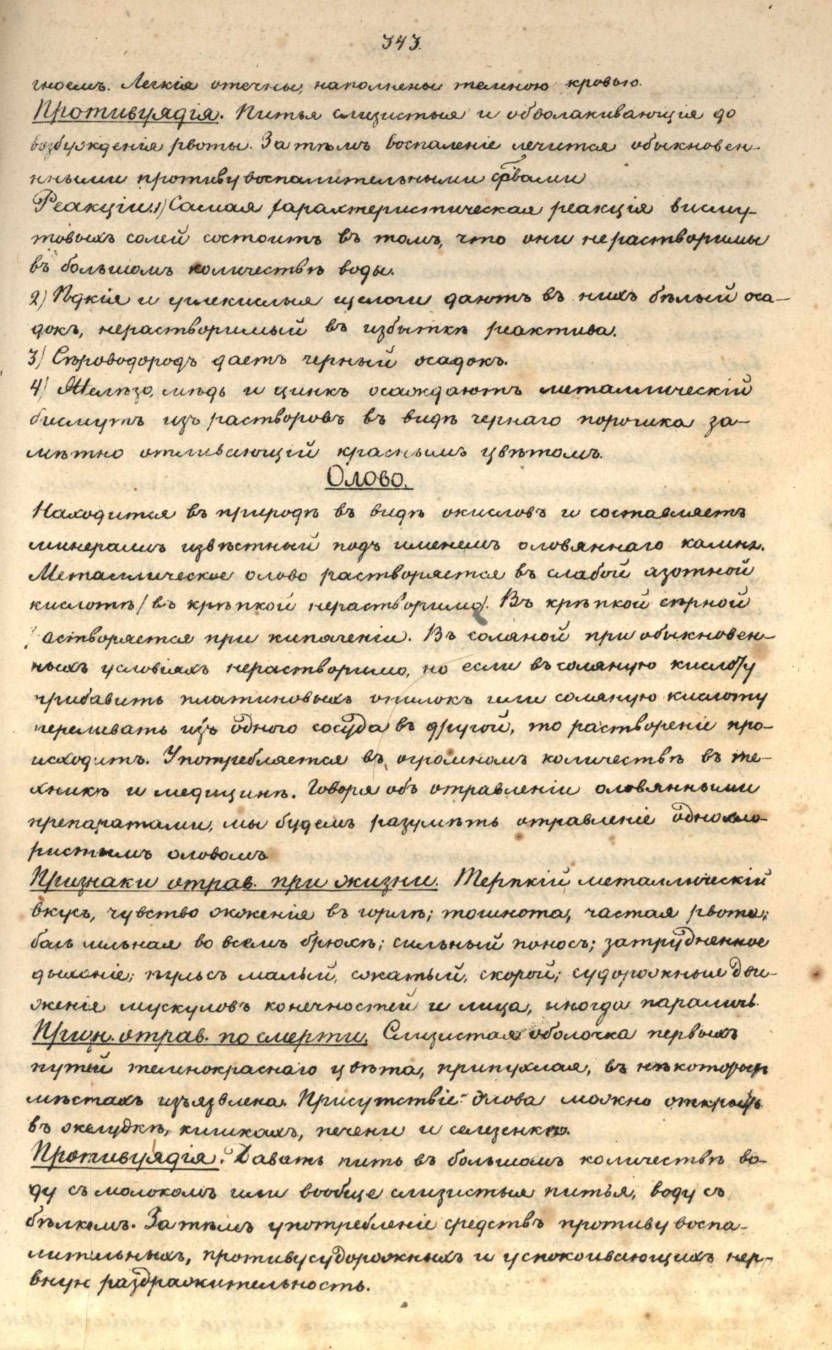 343.
гноемъ. Легкія отечны, наполнены темною кровью.
Противуядія. Питья слизистыя и обволакивающія до
возбужденія рвоты. Затѣмъ воспаленіе лечится обыкновен-
нными противувоспалительными срвами
Реакціи: 1) Самая характеристическая реакція висму-
товыхъ солей состоитъ въ томъ, что они нерастворимы
въ большомъ количествѣ воды.
2) Ѣдкія и углекислыя щелочи даютъ въ нихъ бѣлый оса-
докъ, нерастворимый въ избыткѣ реактива.
3) Сѣроводородъ даетъ черный осадокъ.
4) Желѣзо, мѣдь и цинкъ осаждаютъ металлическій
висмутъ изъ растворовъ въ видѣ чернаго порошка за-
мѣтно отливающій краснымъ цвѣтомъ.
Олово.
Находится въ природѣ въ видѣ окисловъ и составляетъ
минералъ извѣстный подъ именемъ оловяннаго камня.
Металлическое олово растворяется въ слабой азотной
кислотѣ /въ крѣпкой нерастворимо/. Въ крѣпкой сѣрной
растворяется при кипяченіи. Въ соляной при обыкновен-
ныхъ условіяхъ нерастворимо, но если въ соляную кислоту
прибавить платиновыхъ опилокъ или соляную кислоту
переливать изъ одного сосуда въ другой, то раствореніе про-
исходитъ. Употребляется въ огромномъ количествѣ въ те-
хникѣ и медицинѣ. Говоря объ отравленіи оловянными
препаратами, мы будемъ разумѣть отравленіе однохло-
ристымъ оловомъ
Признаки отрав. при жизни. Терпкій металлическій
вкусъ, чувство жженія въ горлѣ; тошнота, частая рвота;
боль сильная во всемъ брюхѣ; сильный поносъ; затрудненное
дыханіе; пульсъ малый, сжатый, скорой; судорожныя дви-
женія мускуловъ конечностей и лица, иногда параличъ.
Призн. отрав. по смерти. Слизистая оболочка первыхъ
путей темнокраснаго цвѣта, припухлая, въ нѣкоторыхъ
мѣстахъ изъязвлена. Присутствіе олова можно открыть
въ желудкѣ, кишкахъ, печени и селезенкѣ.
Противуядія. Давать пить въ большомъ количествѣ во-
ду съ молокомъ или вообще слизистыя питья, воду съ
бѣлкомъ. Затѣмъ употребленіе средствъ противувоспа-
лительныхъ, противусудорожныхъ и успокоивающихъ нер-
вную раздражительность.